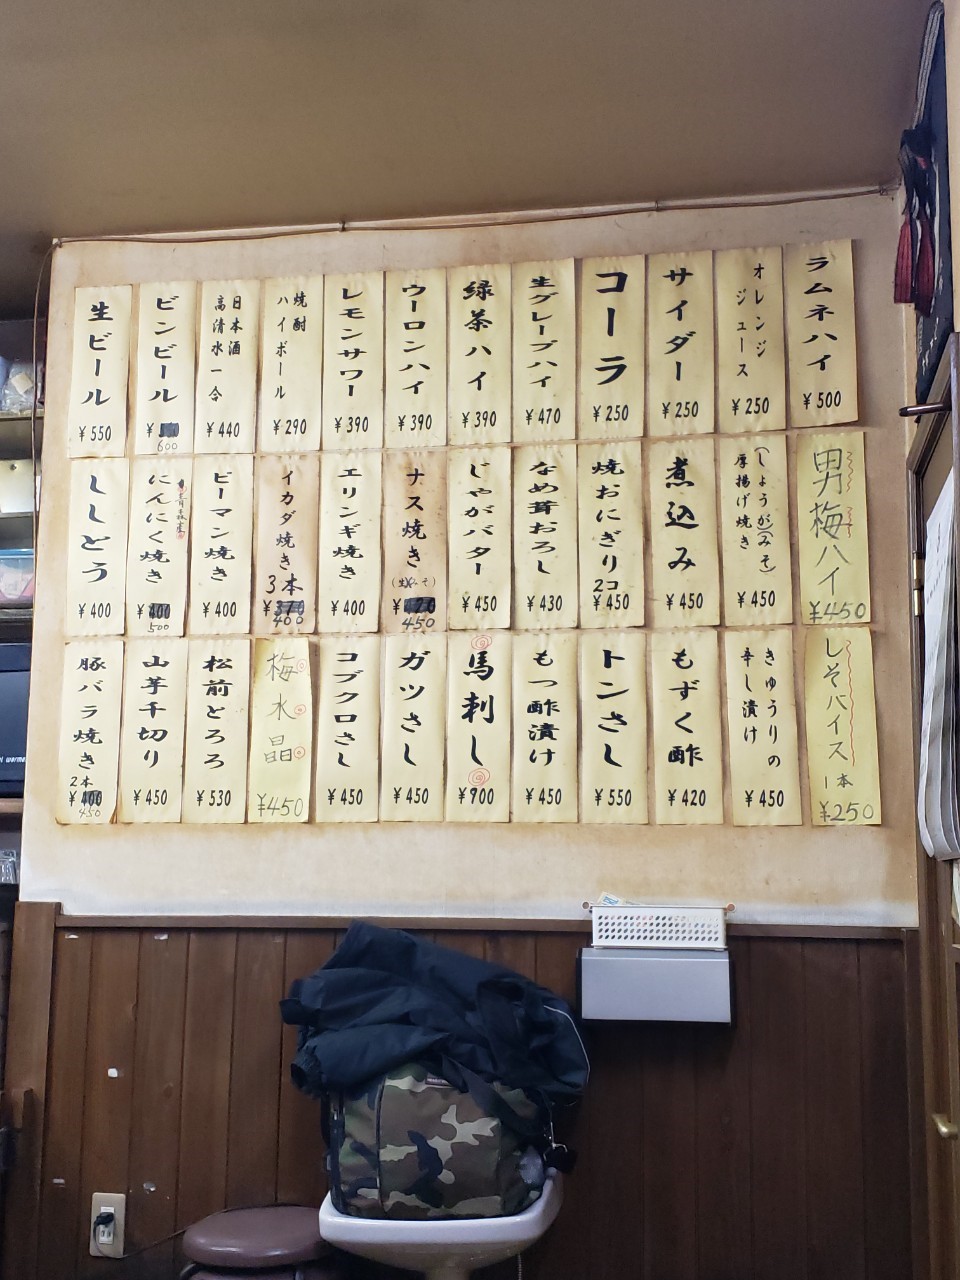 生ビール
¥550
ビンビール
¥
600
日本酒
高清水一合
¥440
焼酎
ハイボール
¥290
レモンサワー
¥390
ウーロンハイ
¥390
緑茶ハイ
¥390
生グレープハイ
¥470
コーラ
¥250
サイダー
¥250
オレンジ
ジュース
¥250
ラムネハイ
¥500
ししとう
¥400
青森産
にんにく焼き
¥400
500
ピーマン焼き
¥400
イカダ焼き
3本
¥370
400
エリンギ焼き
¥400
ナス焼き
¥420
450
じゃがバター
¥450
なめ茸おろし
¥430
焼おにぎり
2コ
¥450
煮込み
¥450
(しょうが)(みそ)
厚揚げ焼き
¥450
男梅ハイ
¥450
豚バラ焼き
2本
¥400
450
山芋千切り
¥450
松前とろろ
¥530
梅水晶
¥450
コブクロさし
¥450
ガツさし
¥450
馬刺し
¥900
もつ酢漬け
¥450
トンさし
¥550
もずく酢
¥420
きゅうりの
辛し漬け
¥450
しそバイス
1本
¥250